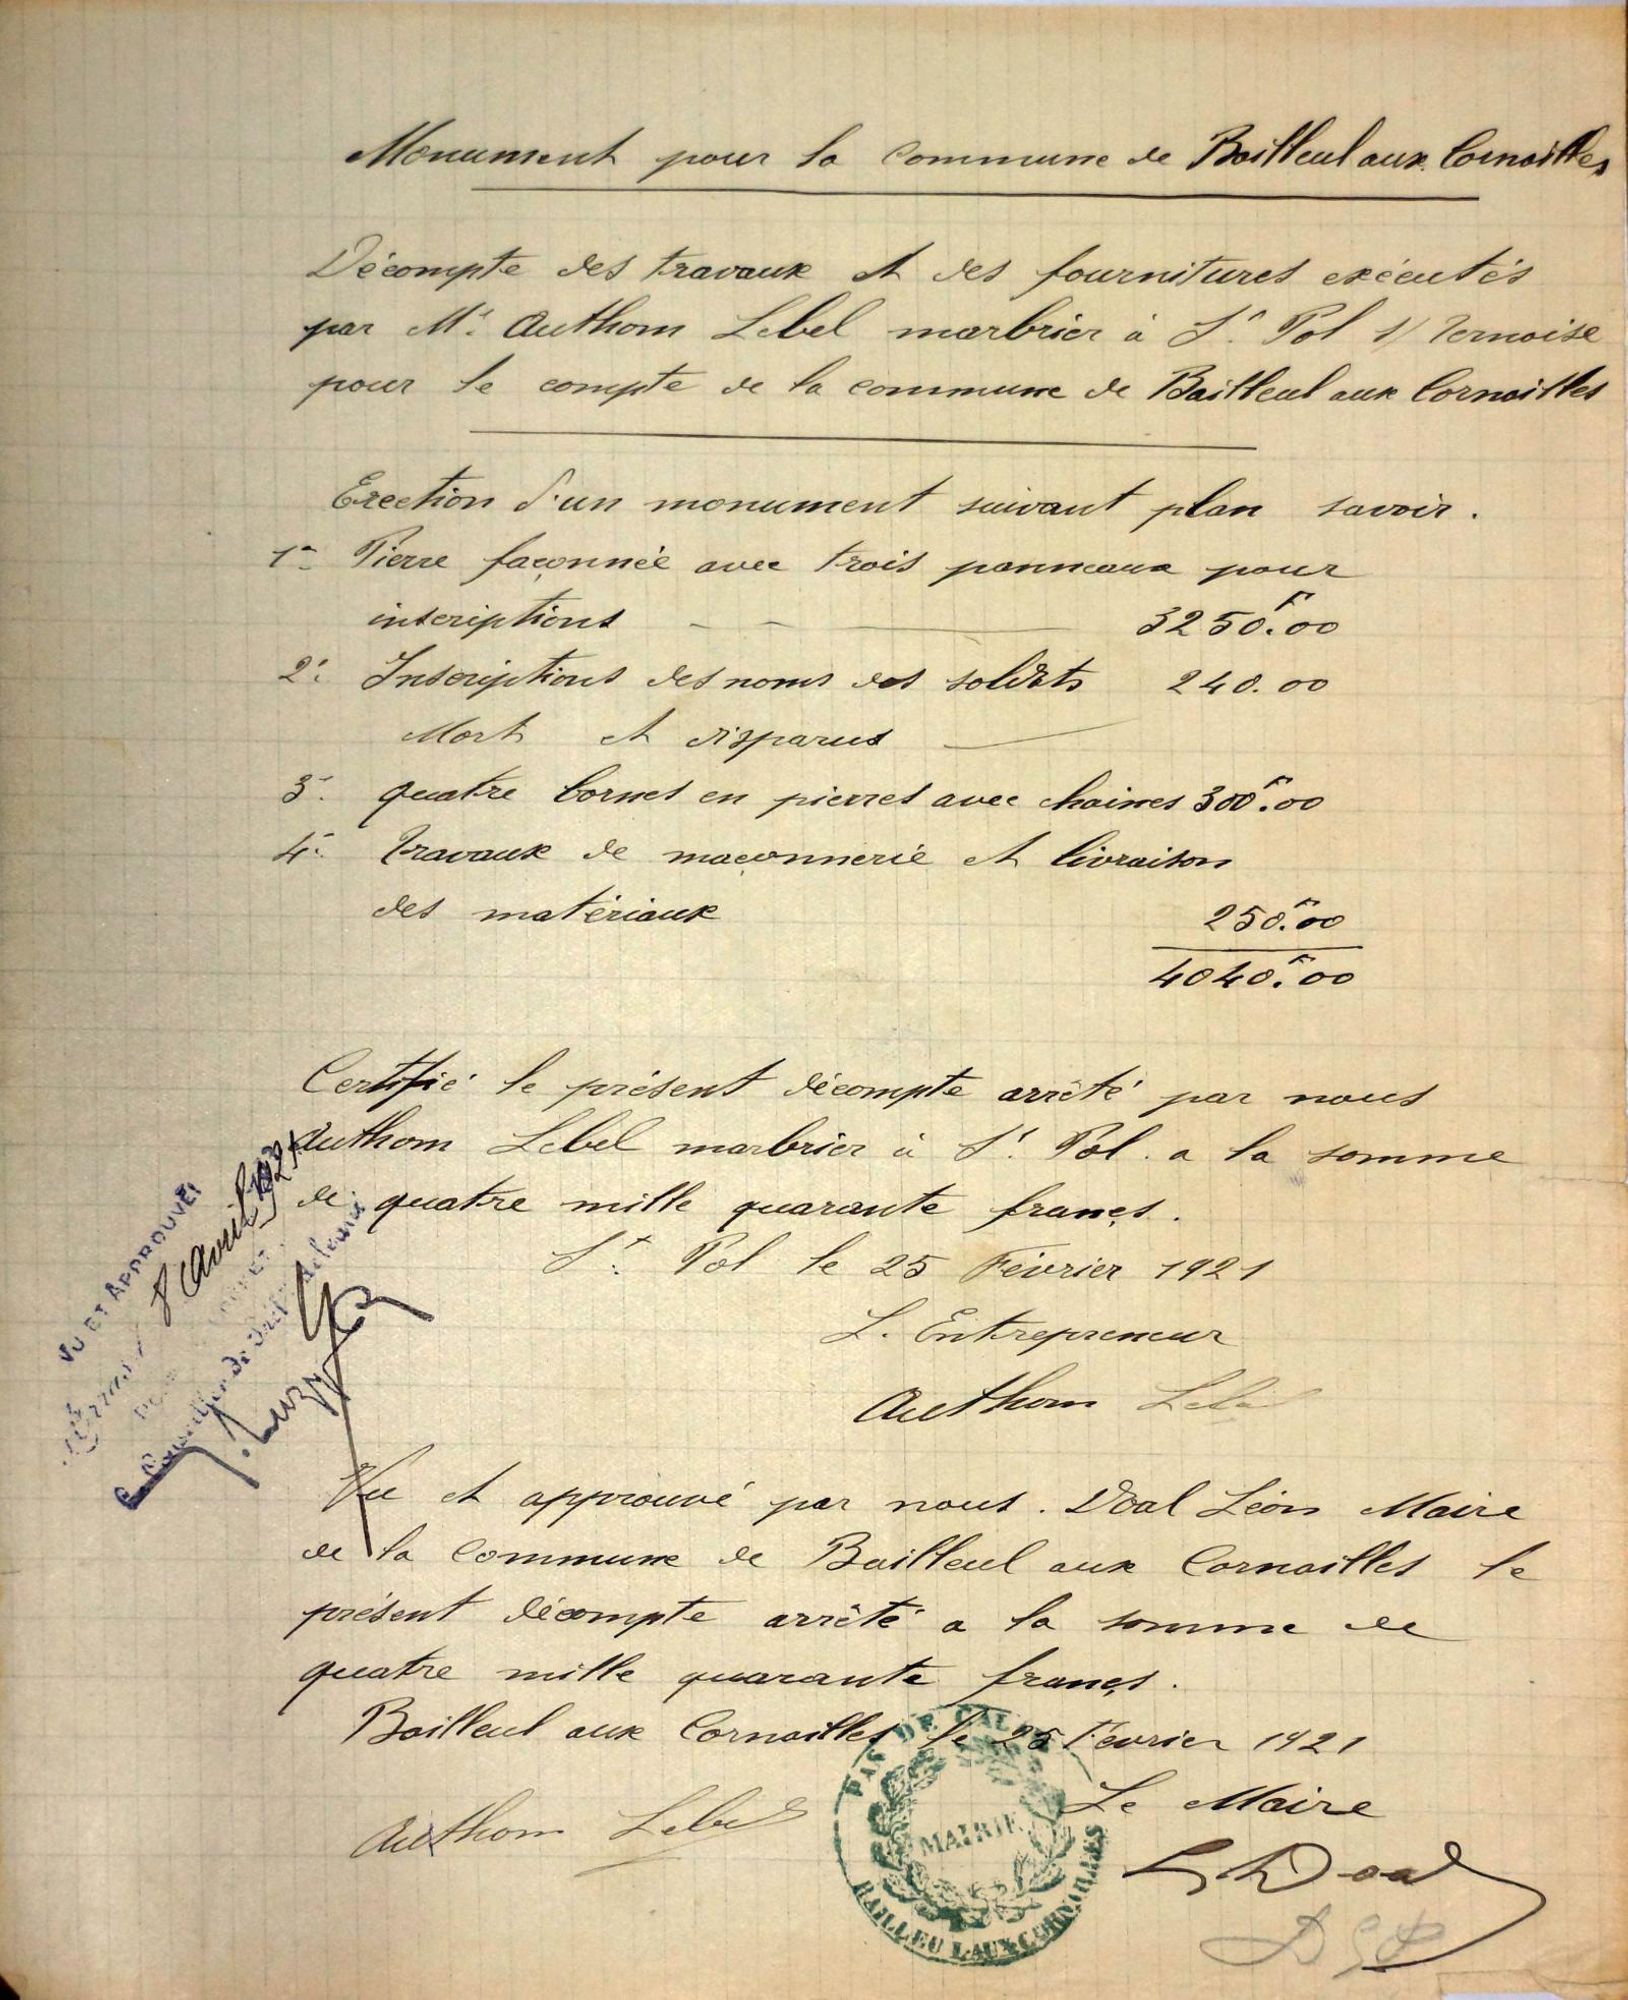 Monument pour la commune de Bailleul aux Cornailles
Décompte des travaux et des fournitures exécutés
par Mr. Authom Lebel marbrier à St. Pol s/ Ternoise
pour le compte de la commune de Bailleul aux Cornailles
Erection d'un monument suivant plan savoir.
1° Pierre façonnée avec trois panneaux pour
inscriptions — — — 3250F.00
2° Inscriptions des noms des soldats 240.00
Mort et disparus —
3° quatre bornes en pierres avec chaines 300F.00
4° Travaux de maçonnerie et livraison
des matériaux 250F.00
4040F.00
Certifié le présent décompte arrêté par nous
Authom Lebel marbrier à St. Pol. a la somme
de quatre mille quarante françs.
St. Pol le 25 Février 1921
L. Entrepreneur
Authom Lebel
VU ET APPROUVÉ
8 Avril 1921
Le Conseiller de Préfecture délégué
Vu et approuvé par nous. Doal Léon Maire
de la Commune de Bailleul aux Cornailles le
présent décompte arrêté a la somme de
quatre mille quarante françs.
Bailleul aux Cornailles le 25 Février 1921
Le Maire
Authom Lebel
L Doal
PAS DE CALAIS
MAIRIE
BAILLEUL AUX CORNAILLES